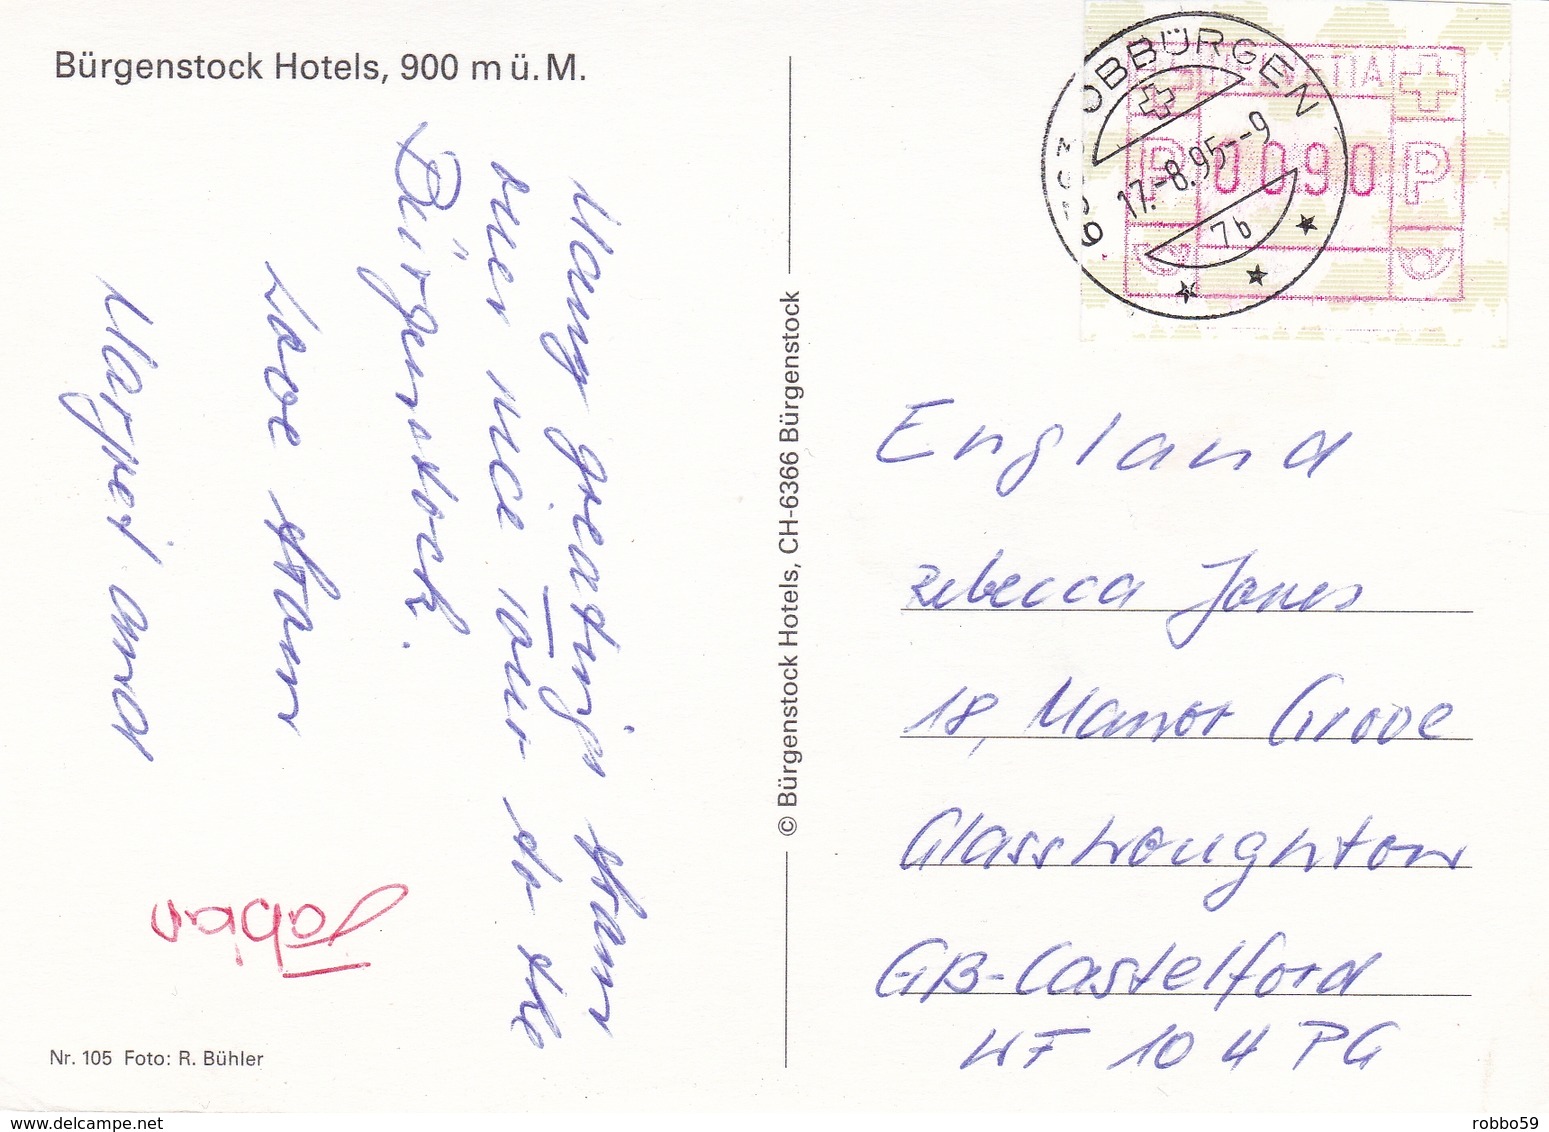 Bürgenstock Hotels, 900 m ü. M.
Many greatings from
ouer nice tour to the
Bürgenstock.
Love from
Margret and
Fabian
Nr. 105 Foto: R. Bühler
© Bürgenstock Hotels, CH-6366 Bürgenstock
OBBÜRGEN
17.-8.95--9
7b
HELVETIA
P 0090 P
England
Rebecca Jones
18, Manor Grove
Glasshoughton
GB-Castelford
WF 10 4 PG
www.delcampe.net
robbo59